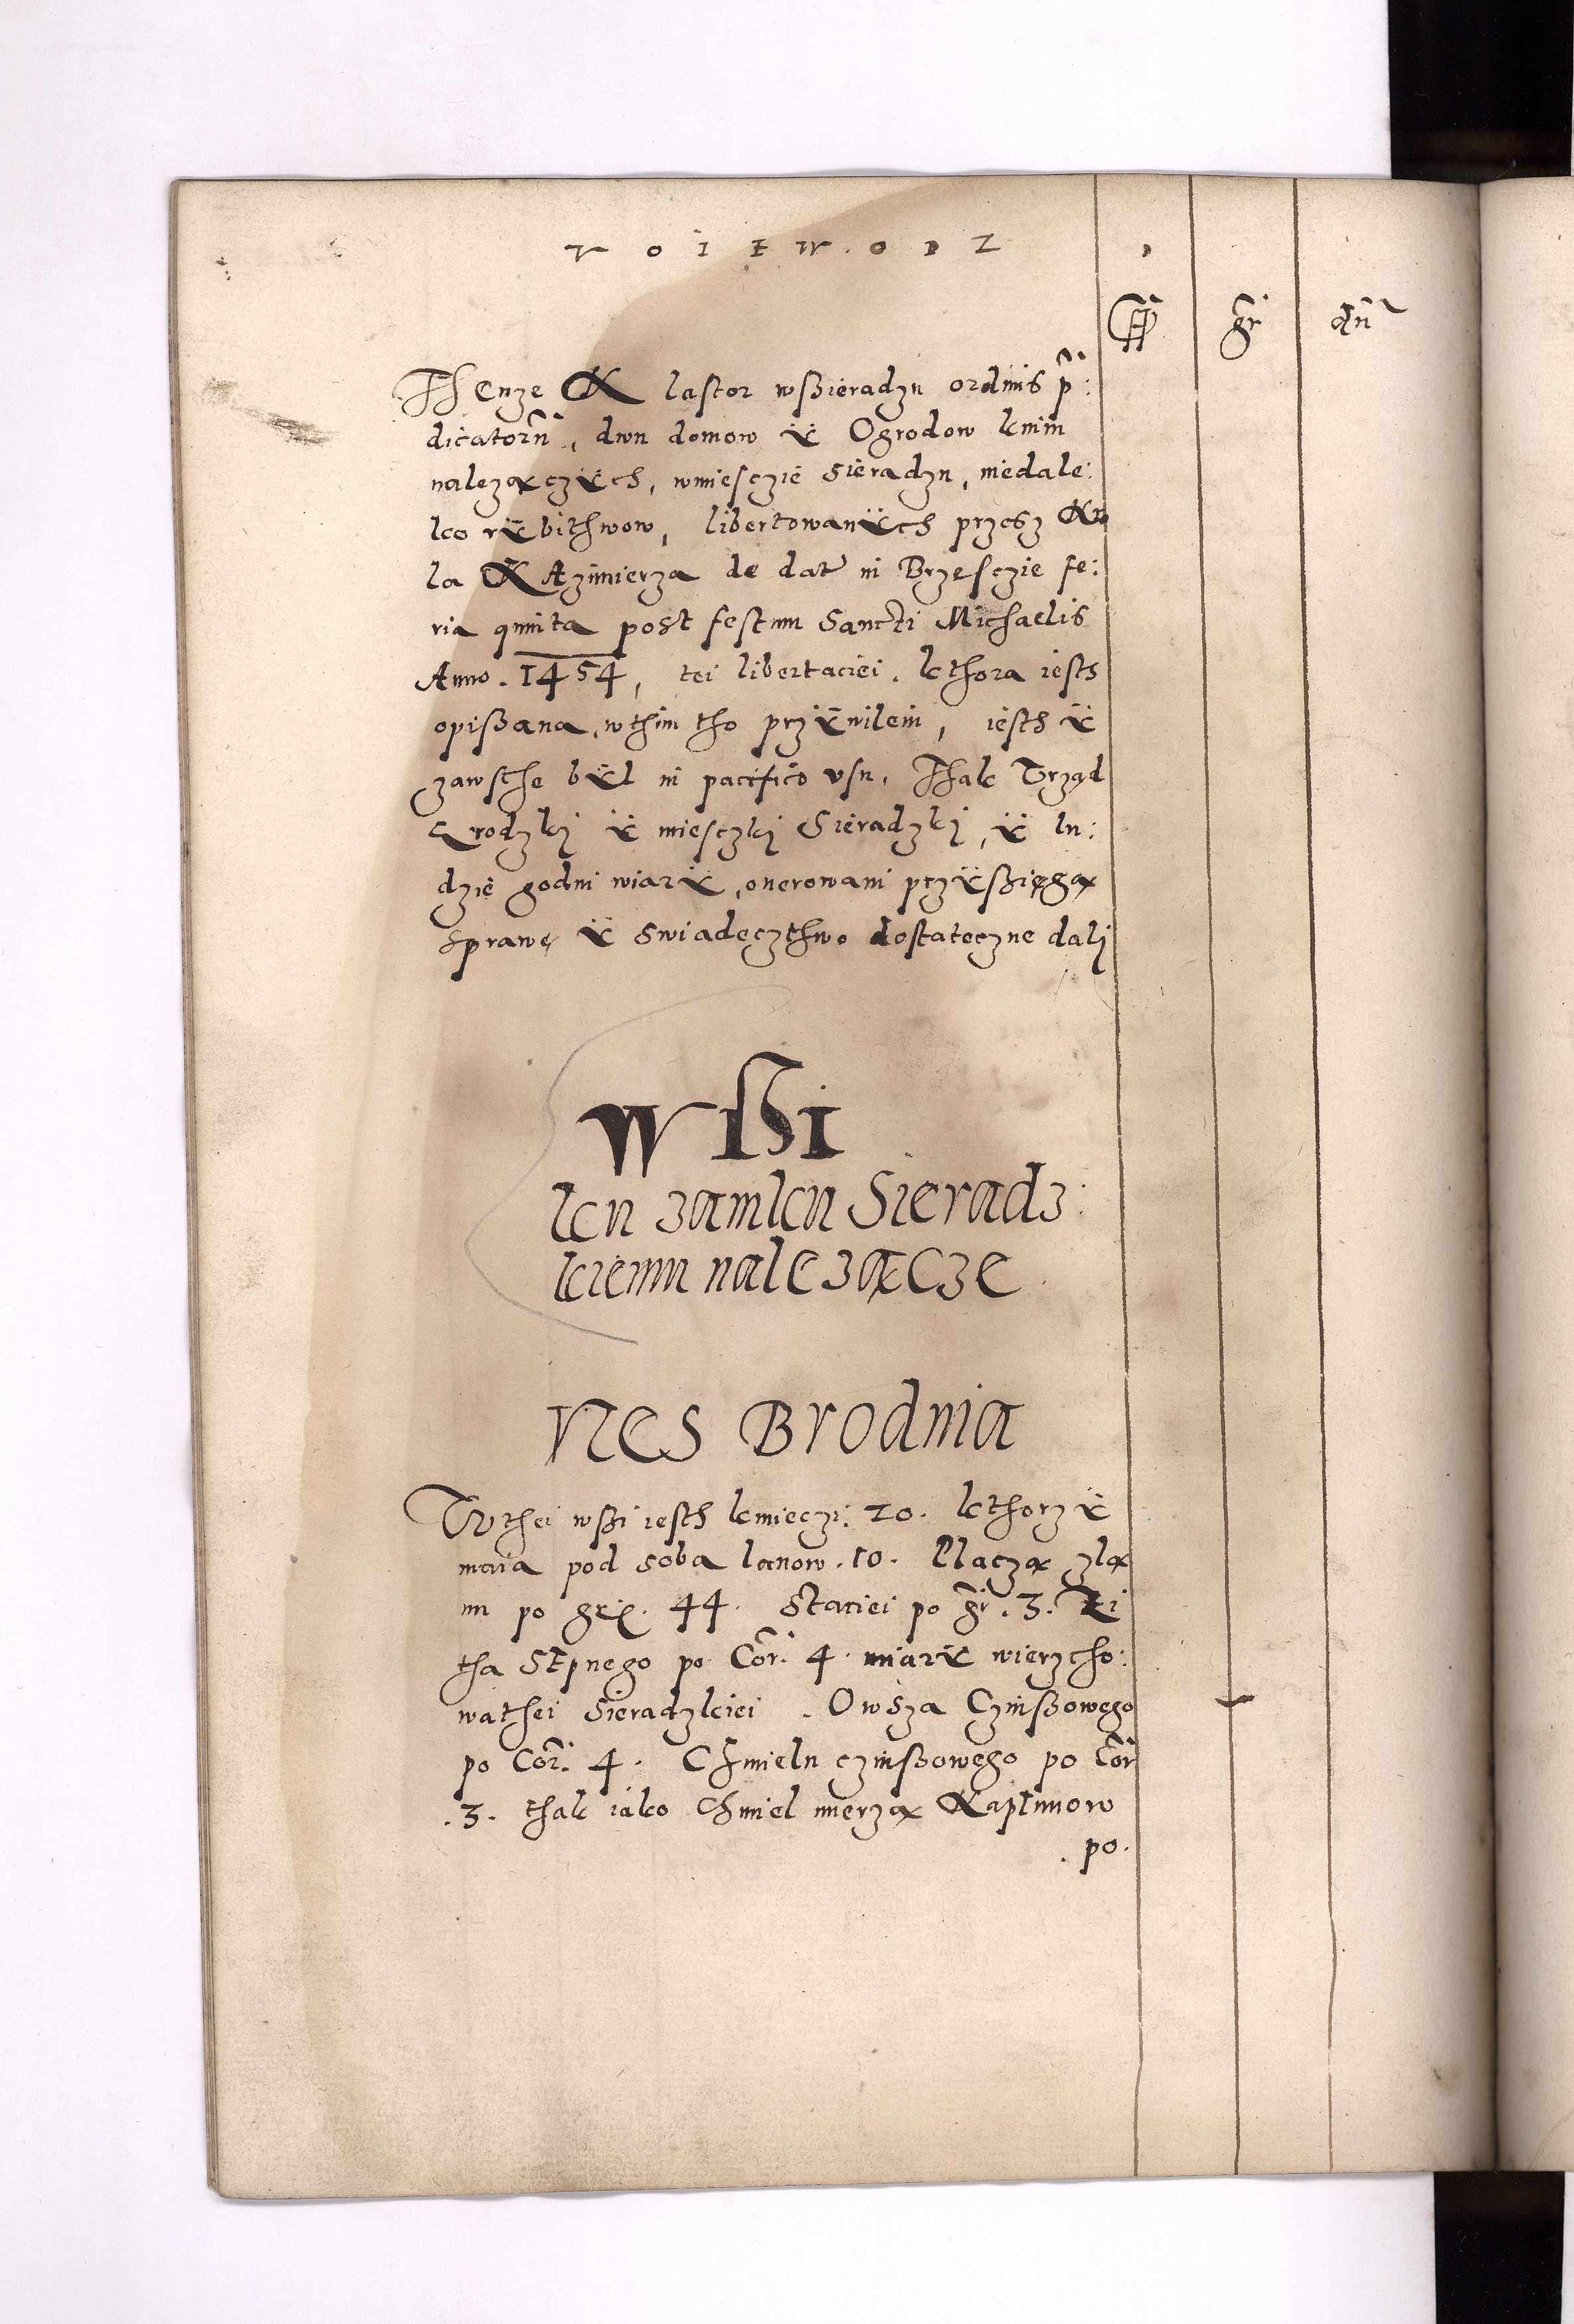 VOIEWODZ
gr dn
Thenże Klastor wßieradzu ordinis p:
dicatorũ, dwu domow ÿ Ogrodow knim
należączÿch, wmiesczie Sieradzu, niedale:
ko rÿbithwow, libertowanÿch przesz Kro
la KAzimierza de dat in Brzesczie fe:
ria quinta post festum Sancti Michaelis
Anno. 1454, tei libertaciei, kthora iesth
opißana, wthim tho przÿuileiu, iesth ÿ
zawsthe bÿl in pacifico vsu. Thak Vrząd
Grodzkj ÿ miesczkj Sieradzkj, ÿ lu:
dzie godni wiarÿ, onerowani przÿßięgą
sprawę ÿ swiadecztwo dostateczne dalj
Wßi
ku zamku Sieradz:
kiemu należącze
Wes Brodnia
W thei wßi iesth kmieczi. 20. kthorzÿ
maia pod soba lanow. 10. Placzą zla
nu po grꝭ. 44. Staciei po gr. 3. Zi
tha Stpnego po Cor. 4. miarÿ wierzcho:
wathei Sieradzkiei. Owsza Czinßowego
po Cor. 4. Chmielu czinßowego po Cor
.3. thak iako Chmiel mierzą Kaplunow
. po.